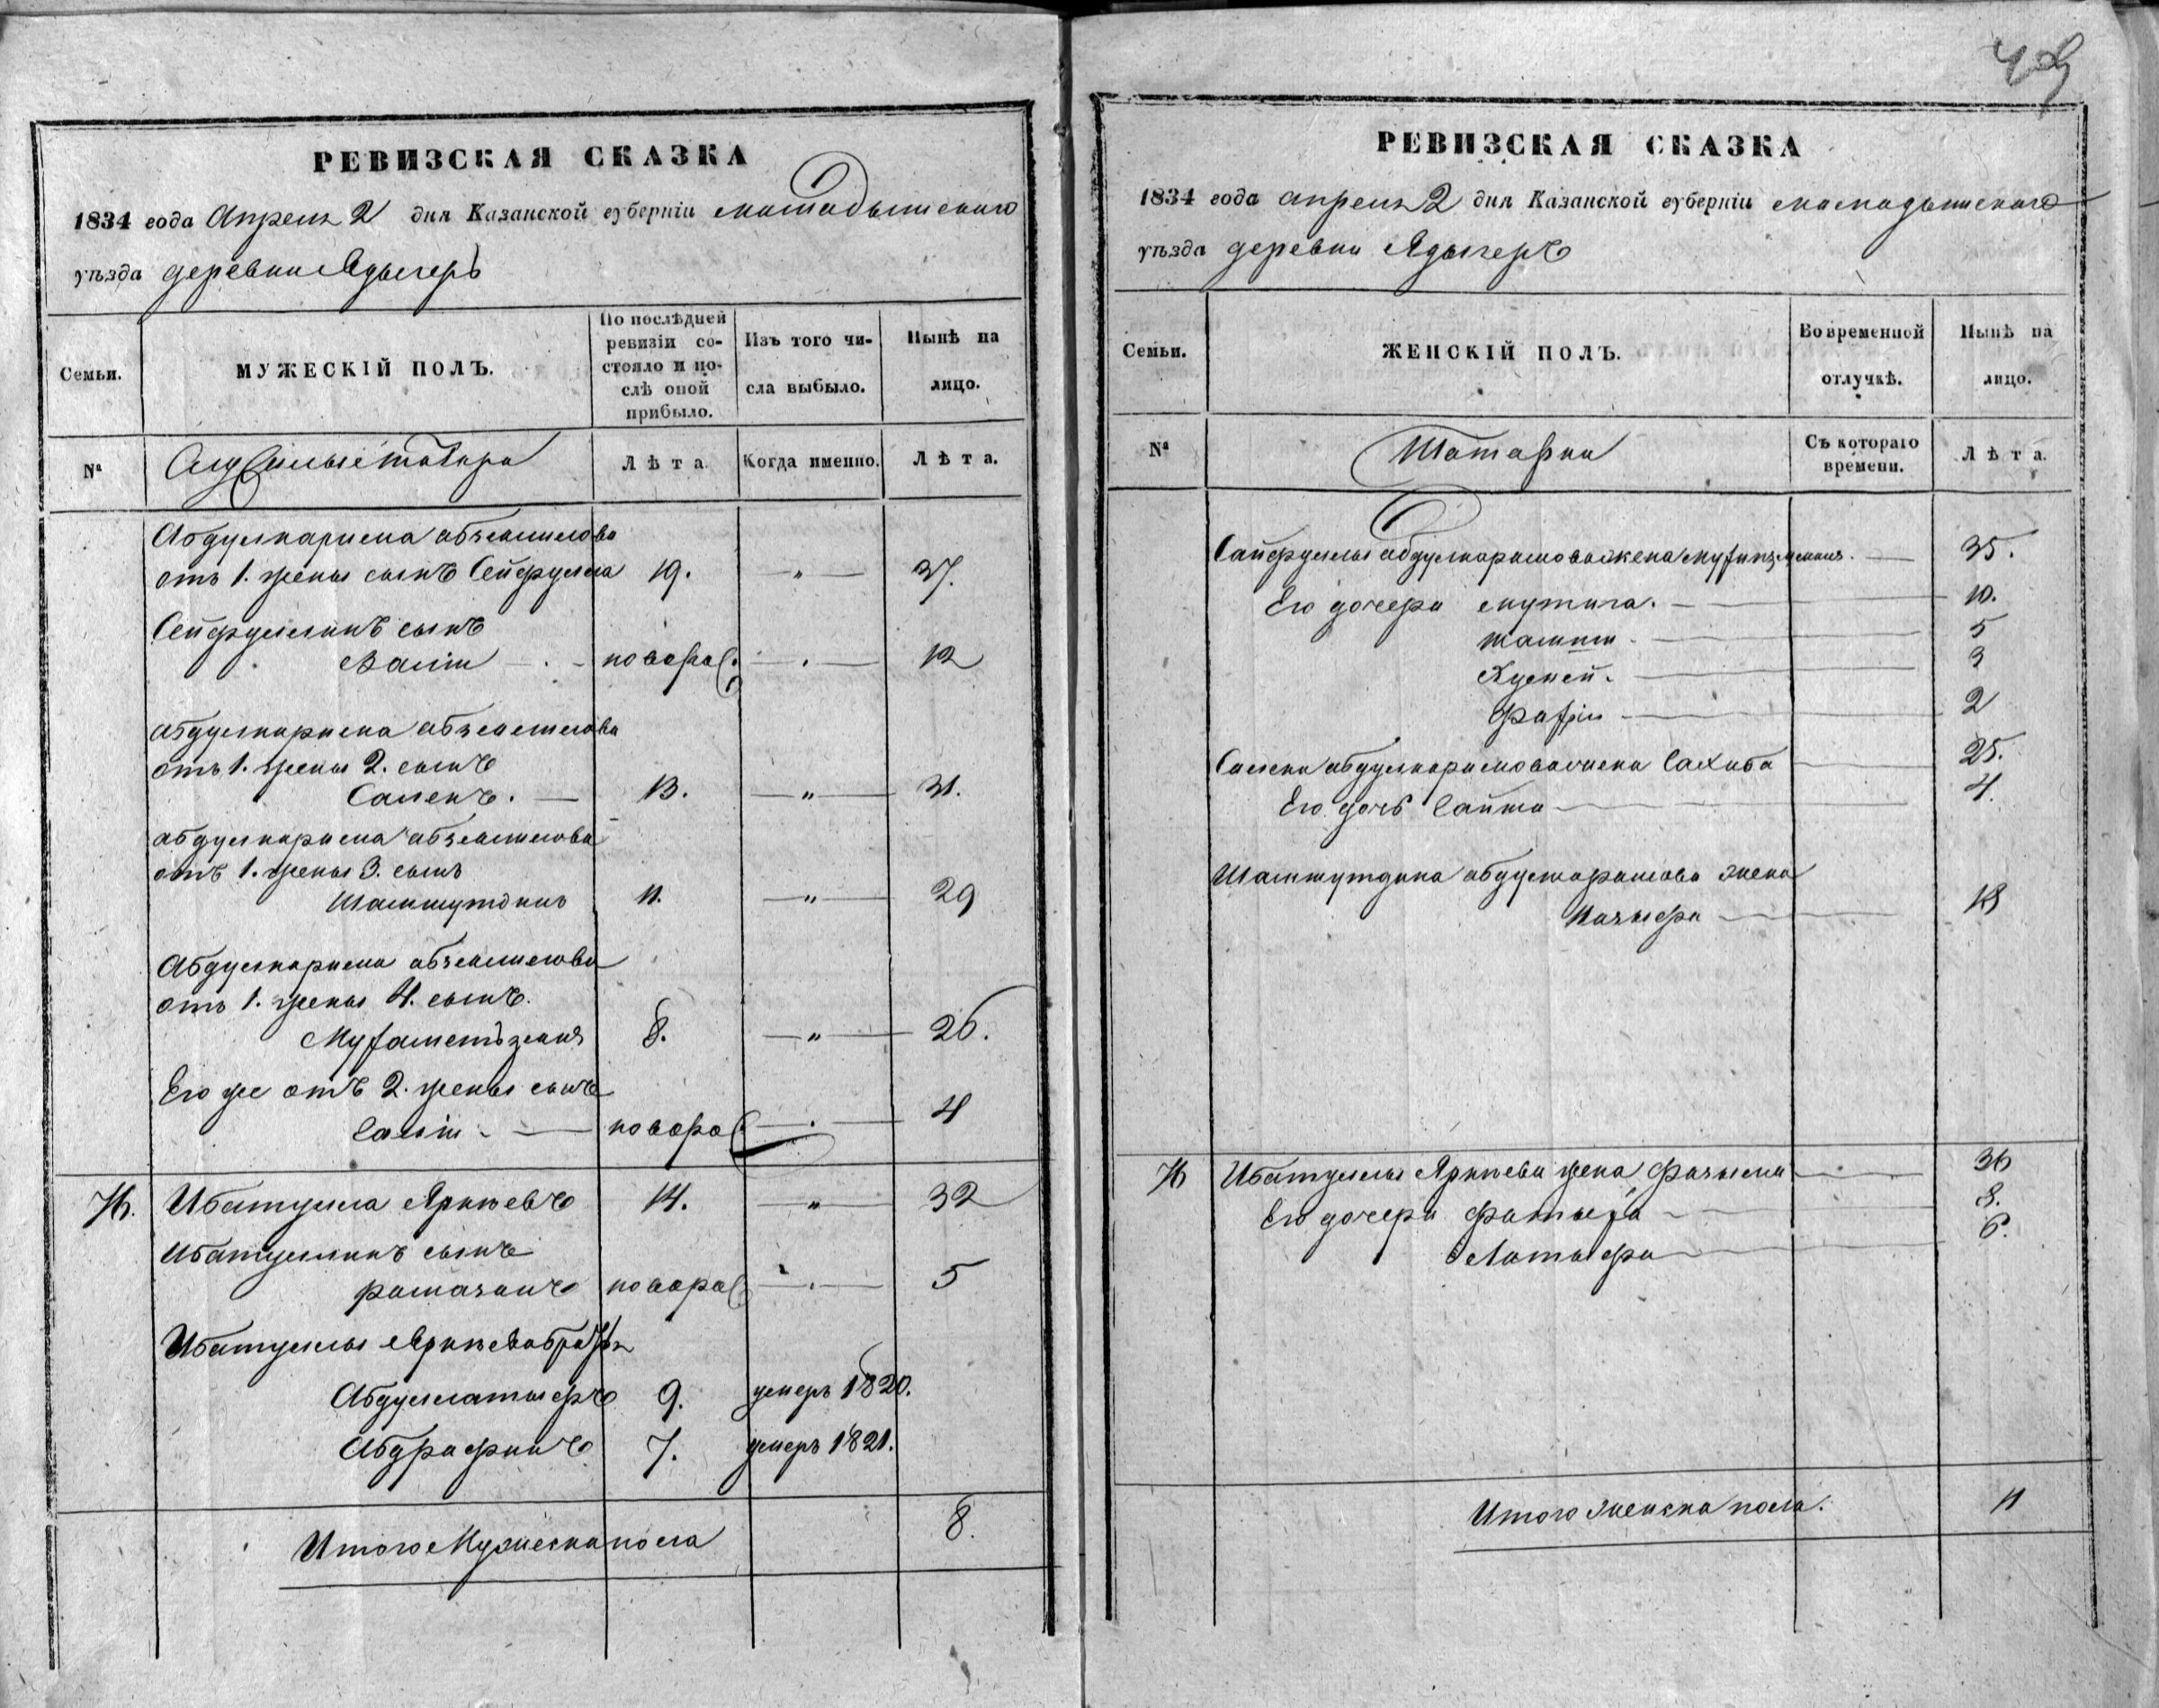 49
РЕВИЗСКАЯ СКАЗКА
1834 года Апреля 2 дня Казанской губерніи мамадышскаго
уѣзда деревни Ядыгерь
Семьи.
МУЖЕСКІЙ ПОЛЪ.
По послѣдней ревизіи состояло и послѣ оной прибыло.
Изъ того числа выбыло.
Нынѣ на лицо.
№
татара
Лѣта.
Когда именно.
Лѣта.
Абдулкарима абземилова
отъ 1. жены сынъ Сейфулла 19. — " — 37.
Сейфуллинъ сынъ
Валіи — новорож. — " — 12
абдулкарима абземилова
отъ 1. жены 2. сынъ
Салехъ. — 13. — " — 31.
абдулкарима абземилова
отъ 1. жены 3. сынъ
Шамшутдинъ 11. — " — 29
Абдулкарима абземилова
отъ 1. жены 4. сынъ.
Мухаметзянъ 8. — " — 26.
Его же отъ 2. жены сынъ
Салім — новорож — " — 4
76. Ибатулла Яркѣевъ 14. — " — 32
Ибатуллинъ сынъ
рамазанъ новорож — " — 5
Ибатуллы Яркѣева братья
Абдуллатыфъ 9. умеръ 1820.
Абдрафикъ 7. умеръ 1821.
Итого Мужеска пола 8.
РЕВИЗСКАЯ СКАЗКА
1834 года апреля 2 дня Казанской губерніи мамадышскаго
уѣзда деревни Ядыгеръ
Семьи.
ЖЕНСКІЙ ПОЛЪ.
Во временной отлучкѣ.
Нынѣ на лицо.
№
Татарки
Съ котораго времени.
Лѣта.
Сайфуллы абдулкаримова жена — 35.
Его дочери — 10.
— 5
— 3
— 2
Салеха абдулкаримова жена Сахиба — 25.
Его дочь Сайма — 4.
Шамшутдина абдулкаримова жена
— 18
76 Ибатуллы Яркѣева жена Фазыла — 36
Его дочери Фатыха — 8.
Латыфа — 6.
Итого женска пола. 11